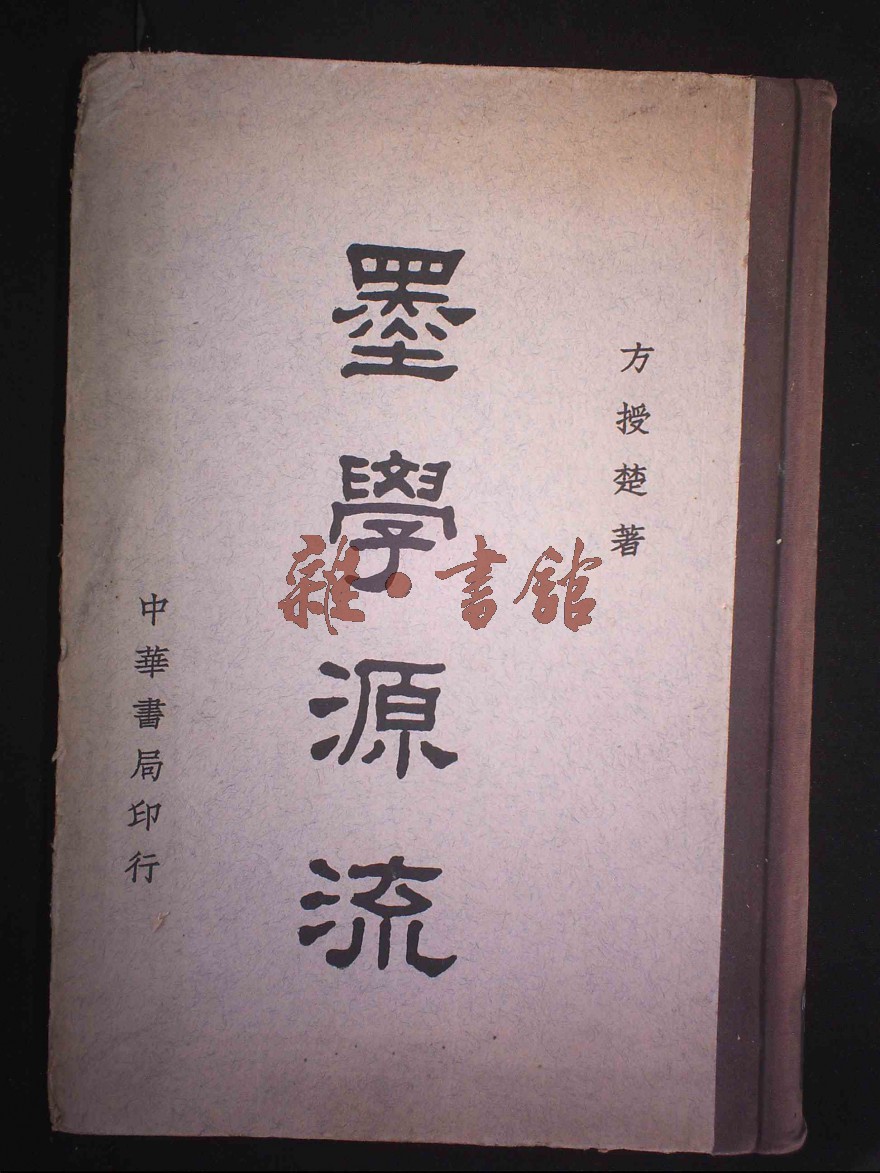 方授楚著
墨學源流
中華書局印行
雜·書館